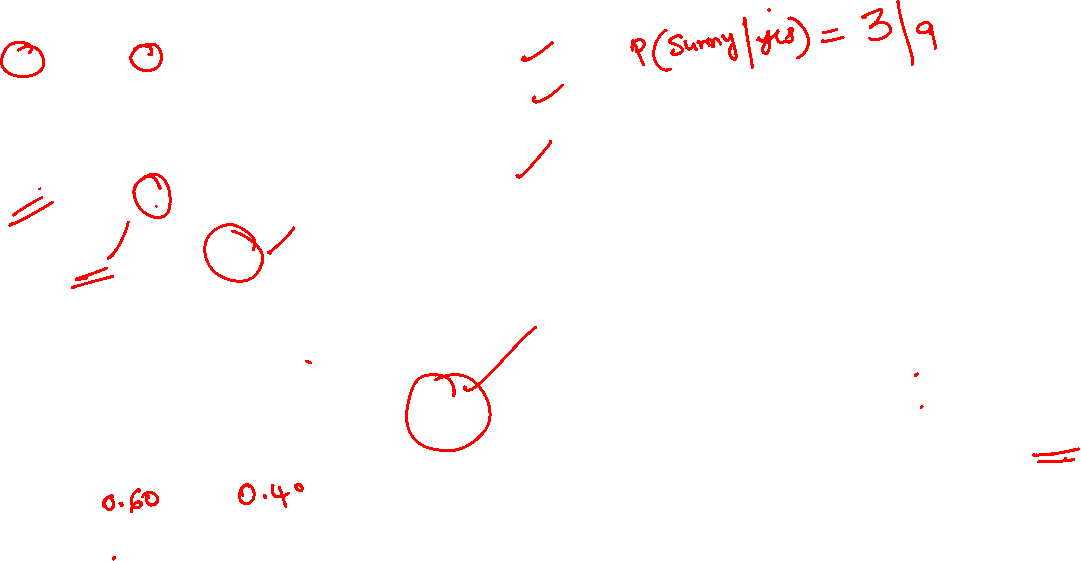 P(Sunny|yes) = 3|9
0.60 0.40